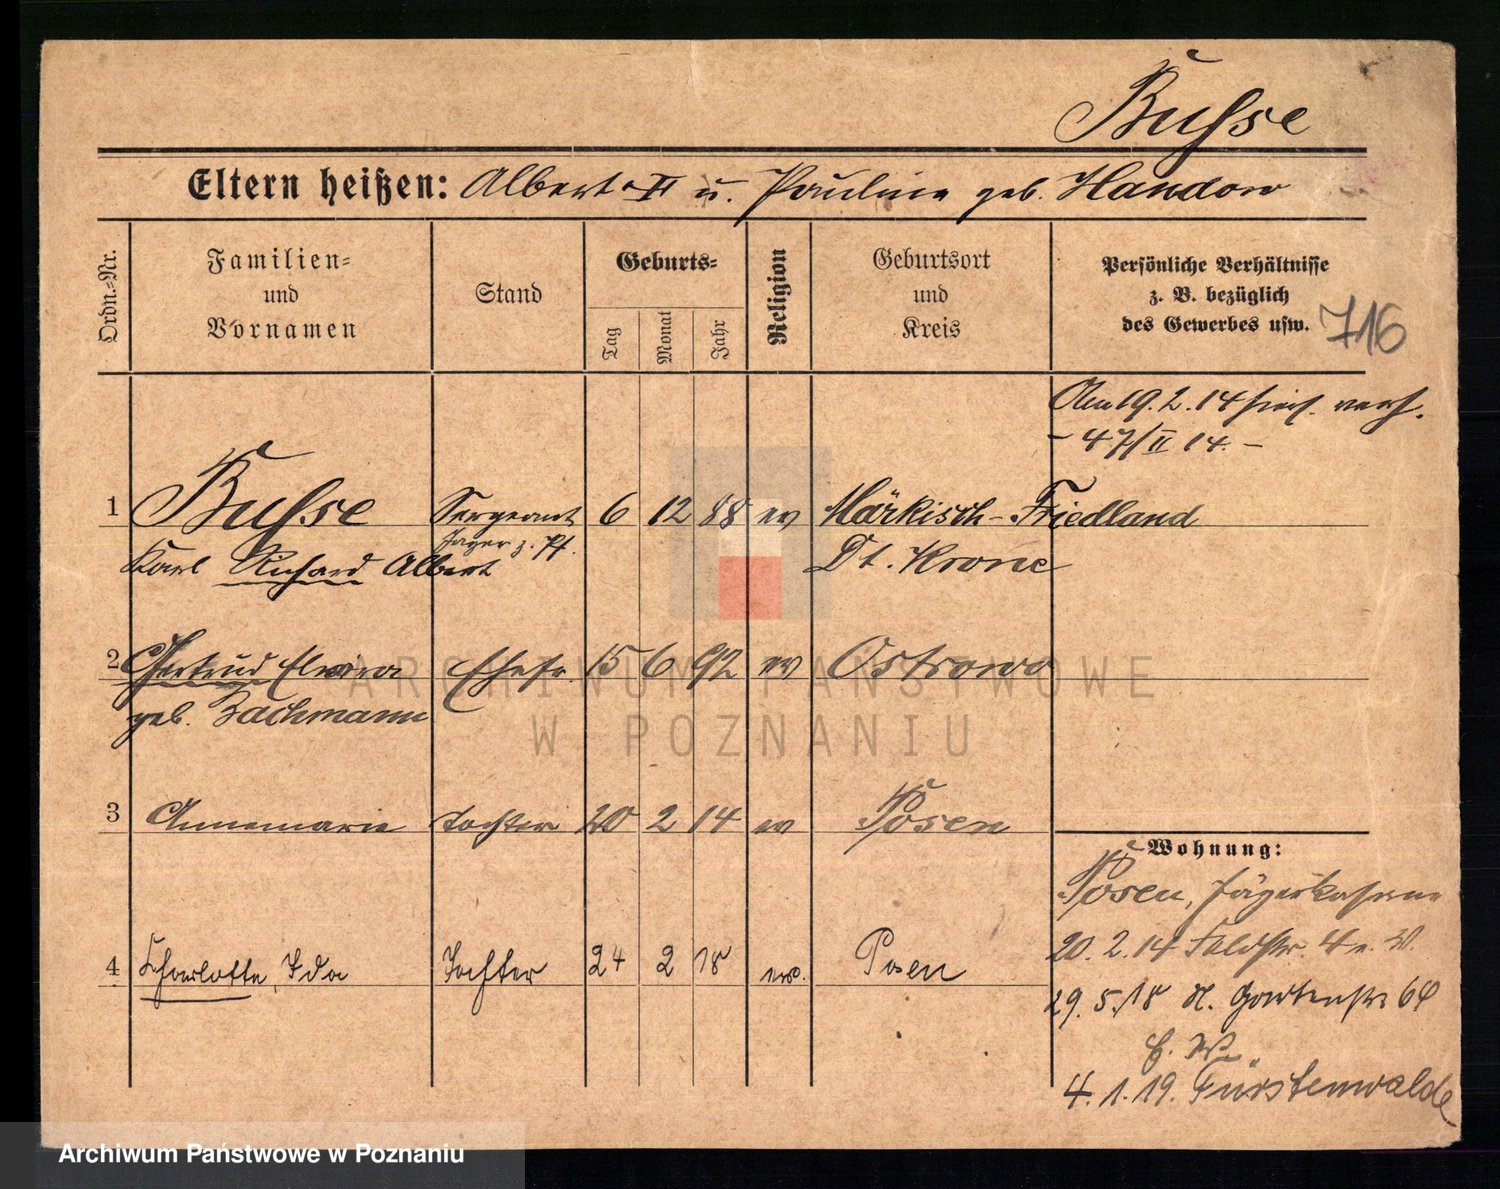 Busse
Eltern heißen: Albert II u. Pauline geb. Handow
Ordn.-Nr.
Familien-
und
Vornamen
Stand
Geburts-
Tag
Monat
Jahr
Religion
Geburtsort
und
Kreis
Persönliche Verhältnisse
z. B. bezüglich
des Gewerbes usw.
716
Am 19. 2. 14 verh.
- 47/II 14. -
1 Busse Sergeant 6 12 88 ev Märkisch-Friedland
Jäger z. Pf.
Karl Richard Albert Dt. Krone
2 Gertrud Elwira Ehefr. 15 6 92 ev Ostrowo
geb. Bachmann
3 Annemarie Tochter 20 2 14 ev Posen
4 Charlotte, Ida Tochter 24 2 18 ev. Posen
Wohnung:
Posen, Jägerkaserne
20. 2. 14 Feldstr. 4
29. 5. 18 N. Gartenstr 64
4. 1. 19. Fürstenwalde
ARCHIWUM PAŃSTWOWE
W POZNANIU
Archiwum Państwowe w Poznaniu